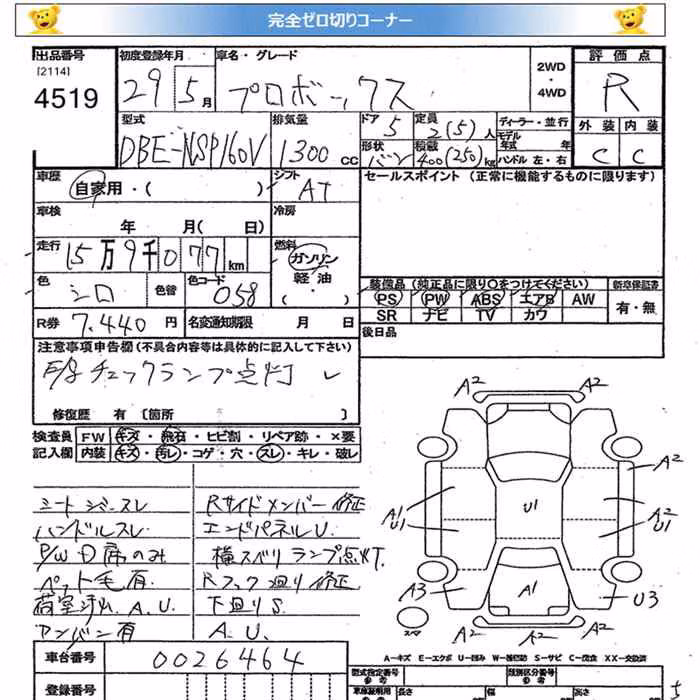 完全ゼロ切りコーナー
出品番号 初度登録年月 車名・グレード 2WD 評価点
[2114] 29 5月 プロボックス ・ R
4519 4WD
型式 排気量 ドア 5 定員 2(5)人 ディーラー・並行 外装 内装
DBE-NSP160V 1300cc 形状 バン 積載 400(250)kg モデル年式 年 ハンドル 左・右 C C
車歴 シフト セールスポイント (正常に機能するものに限ります)
自家用・( ) AT
車検 冷房
年 月( 日)
走行 15万9千077km 燃料 ガソリン
軽油
・( )
色 色替 色コード 装備品 (純正品に限り○をつけてください) 新車保証書
シロ 058 PS PW ABS エアB AW 有・無
SR ナビ TV カワ
R券 7.440円 名変通知期限 月 日 後日品
注意事項申告欄 (不具合内容等は具体的に記入して下さい)
E/g チェックランプ点灯 レ
修復歴 有 [箇所 ]
検査員 FW キズ・飛石・ヒビ割・リペア跡・×要
記入欄 内装 キズ・汚レ・コゲ・穴・スレ・キレ・破レ
シートシミ・スレ Rサイドメンバー修正
ハンドルスレ エンドパネルU.
P/W D席のみ 横スベリランプ点灯.
ペット毛有 Rフロア廻り修正
荷室汚れ. A. U. 下廻りS.
アンバン有 A. U.
A2 A2
A2
A1 U1 U1 A2 U1
A3 A1 U3
スペア A2 A2
A2
A-キズ E-エクボ U-凹み W-補修跡 S-サビ C-腐食 XX-交換済
車台番号 0026464 型式指定番号 参考 類別区分番号 参考
登録番号 車庫証明用 参考 長さ 幅 高さ